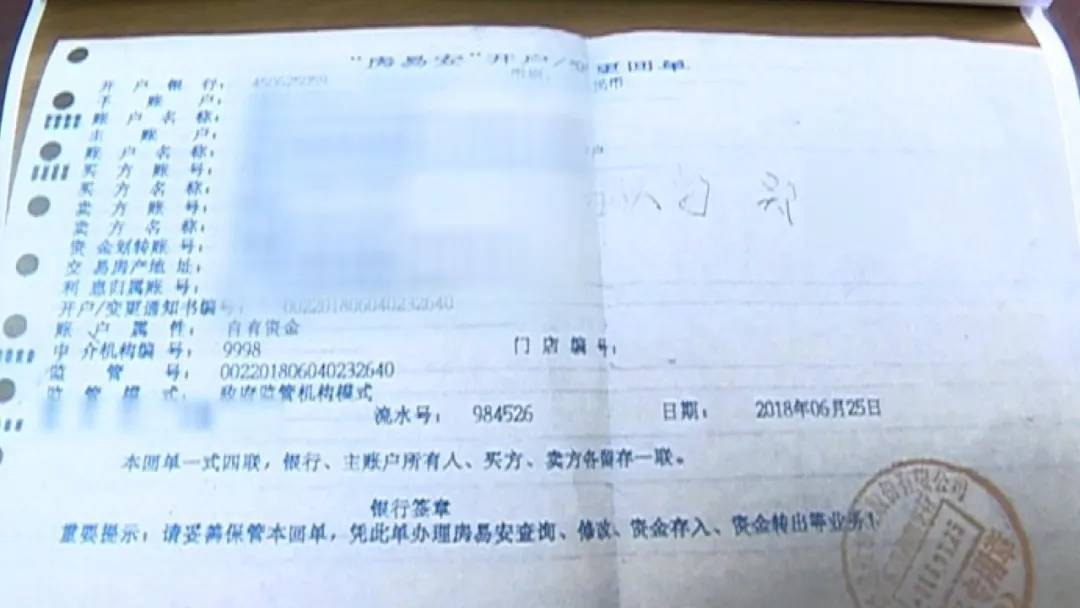 "房易安"开户/变更回单
开户银行：
子账户：
账户名称：
主账户：
账户名称：
买方账号：
买方名称：
卖方账号：
卖方名称：
资金划转账号：
交易房产地址：
利息归属账号：
开户/变更通知书编号： 002201806040232640
账户属性： 自有资金
中介机构编号： 9998 门店编号：
监管号： 002201806040232640
监管模式： 政府监管机构模式
流水号： 984526 日期： 2018年06月25日
本回单一式四联，银行、主账户所有人、买方、卖方各留存一联。
银行签章
重要提示：请妥善保管本回单，凭此单办理房易安查询、修改、资金存入、资金转出等业务！
股份有限公司